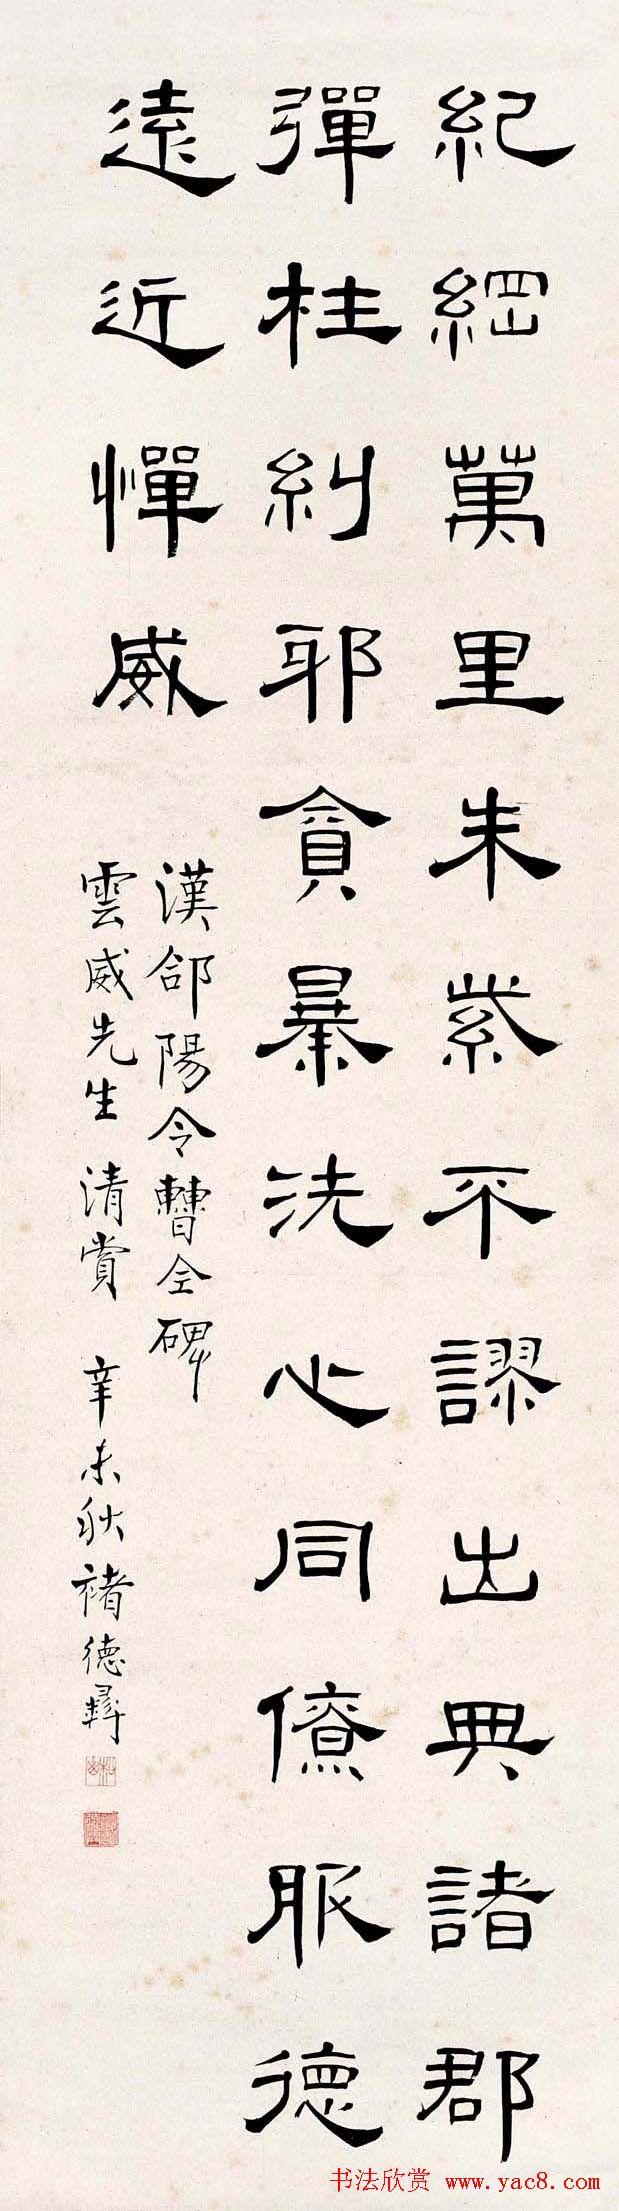 紀綱萬里朱紫不謬出典諸郡
彈枉糾邪貪暴洗心同僚服德
遠近憚威
漢郃陽令曹全碑
雲威先生清賞 辛未秋褚德彝
书法欣赏 www.yac8.com